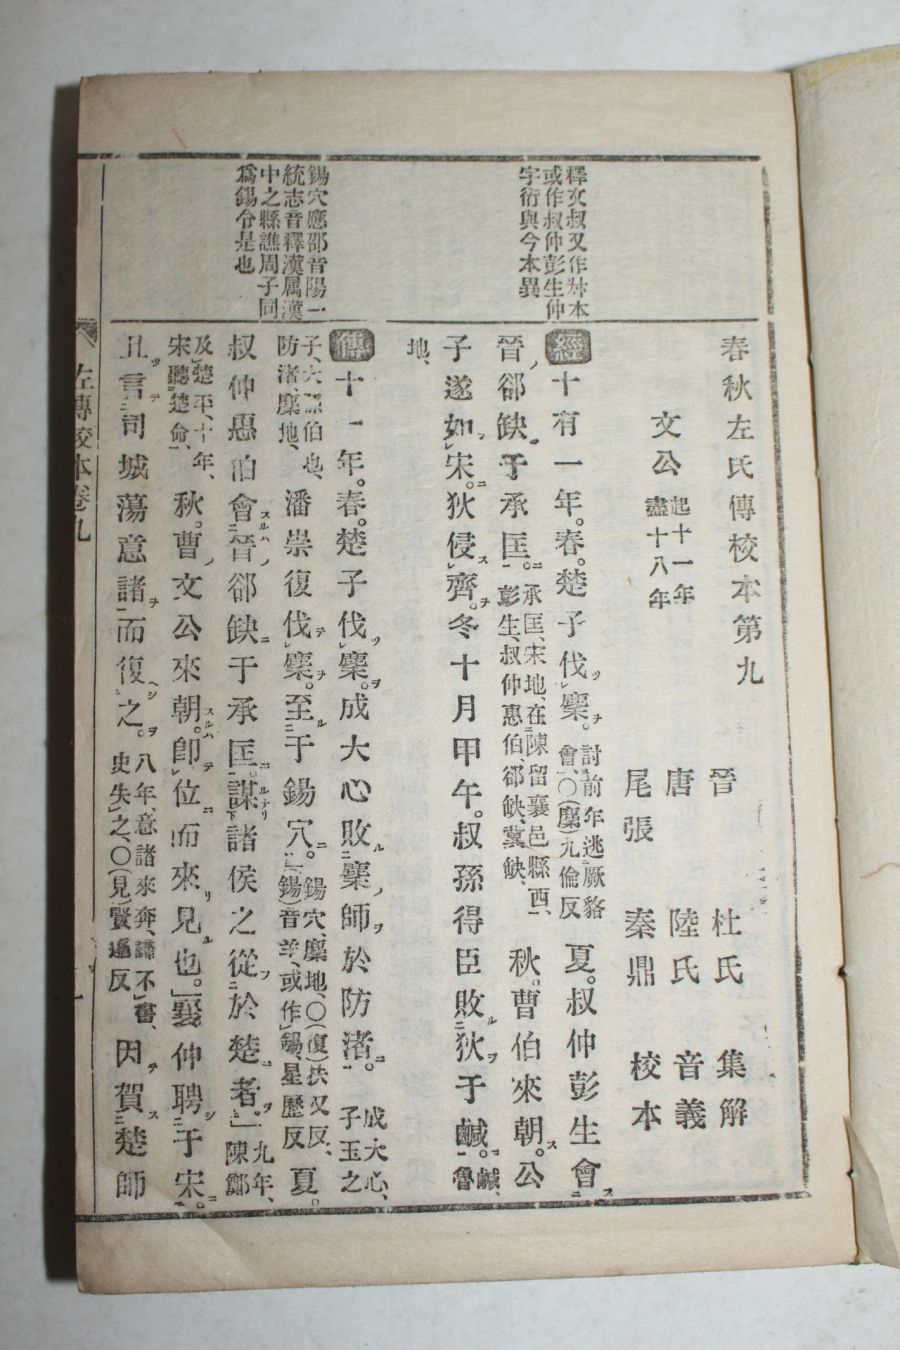 釋文叔又作尗本
或作叔仲彭生仲
字衍與今本異
錫穴應邵音陽一
統志音釋漢属漢
中之縣譙周子同
爲錫令是也
春秋左氏傳校本第九
文公 起十一年 盡十八年
晉 杜氏 集解
唐 陸氏 音義
尾張 秦鼎 校本
經十有一年。春。楚子伐麇。討前年逃厥貉會、〇(麇)九倫反 夏。叔仲彭生會
晉郤缺于承匡。承匡、宋地、在陳留襄邑縣西、彭生、叔仲惠伯、郤缺、冀缺、 秋。曹伯來朝。公
子遂如宋。狄侵齊。冬十月甲午。叔孫得臣敗狄于鹹。鹹、魯
地、
傳十一年。春。楚子伐麇。成大心敗麇師於防渚。成大心、子玉之
子、大孫伯也、防渚、麇地、 潘崇復伐麇。至于錫穴。錫穴、麇地、〇(復)扶又反、(錫)音羊、或作鍚、星歷反 夏。
叔仲惠伯會晉郤缺于承匡。謀諸侯之從於楚者。九年、陳鄭
及楚平、十年、宋聽楚命、 秋。曹文公來朝。卽位而來見也。襄仲聘于宋。
且言司城蕩意諸而復之。八年、意諸來奔、歸不書、史失之、〇(見)賢遍反 因賀楚師
左傳校本卷九